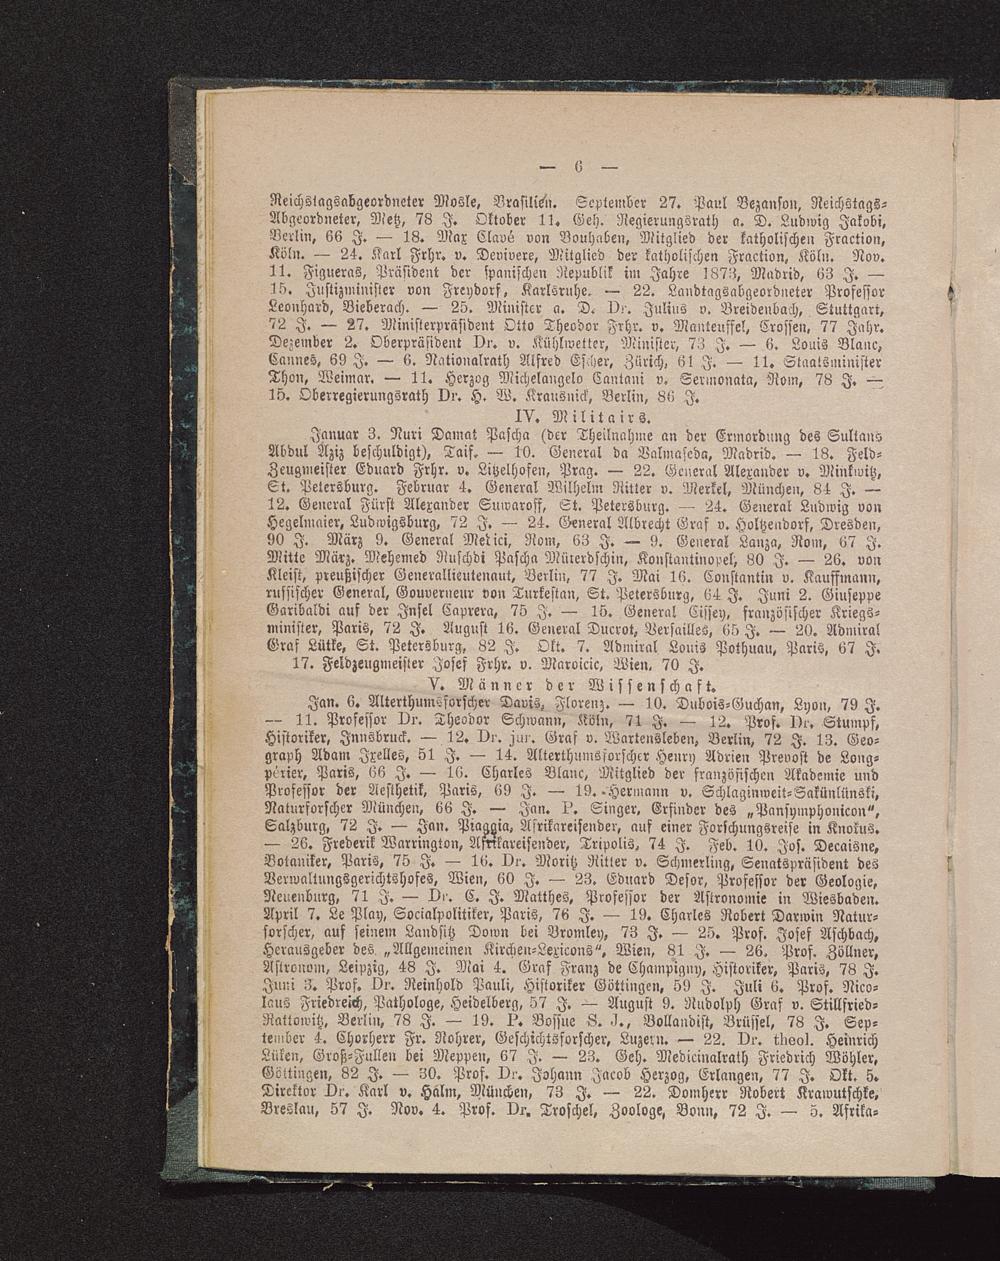 — 6 —
Reichstagsabgeordneter Mosle, Brasilien. September 27. Paul Bezanson, Reichstags-
Abgeordneter, Metz, 78 J. Oktober 11. Geh. Regierungsrath a. D. Ludwig Jakobi,
Berlin, 66 J. — 18. Max Clavé von Bouhaben, Mitglied der katholischen Fraction,
Köln. — 24. Karl Frhr. v. Devivere, Mitglied der katholischen Fraction, Köln. Nov.
11. Figueras, Präsident der spanischen Republik im Jahre 1873, Madrid, 63 J. —
15. Justizminister von Freydorf, Karlsruhe. — 22. Landtagsabgeordneter Professor
Leonhard, Bieberach. — 25. Minister a. D. Dr. Julius v. Breidenbach, Stuttgart,
72 J. — 27. Ministerpräsident Otto Theodor Frhr. v. Manteuffel, Crossen, 77 Jahr.
Dezember 2. Oberpräsident Dr. v. Kühlwetter, Minister, 73 J. — 6. Louis Blanc,
Cannes, 69 J. — 6. Nationalrath Alfred Escher, Zürich, 61 J. — 11. Staatsminister
Thon, Weimar. — 11. Herzog Michelangelo Cantani v. Sermonata, Rom, 78 J. —
15. Oberregierungsrath Dr. H. W. Krausnick, Berlin, 86 J.
IV. Militairs.
Januar 3. Nuri Damat Pascha (der Theilnahme an der Ermordung des Sultans
Abdul Aziz beschuldigt), Taif. — 10. General da Valmaseda, Madrid. — 18. Feld-
Zeugmeister Eduard Frhr. v. Litzelhofen, Prag. — 22. General Alexander v. Minkwitz,
St. Petersburg. Februar 4. General Wilhelm Ritter v. Merkel, München, 84 J. —
12. General Fürst Alexander Suwaroff, St. Petersburg. — 24. General Ludwig von
Hegelmaier, Ludwigsburg, 72 J. — 24. General Albrecht Graf v. Holtzendorf, Dresden,
90 J. März 9. General Medici, Rom, 63 J. — 9. General Lanza, Rom, 67 J.
Mitte März. Mehemed Ruschdi Pascha Müterdschin, Konstantinopel, 80 J. — 26. von
Kleist, preußischer Generallieutenaut, Berlin, 77 J. Mai 16. Constantin v. Kauffmann,
russischer General, Gouverneur von Turkestan, St. Petersburg, 64 J. Juni 2. Giuseppe
Garibaldi auf der Insel Caprera, 75 J. — 15. General Cissey, französischer Kriegs-
minister, Paris, 72 J. August 16. General Ducrot, Versailles, 65 J. — 20. Admiral
Graf Lütke, St. Petersburg, 82 J. Okt. 7. Admiral Louis Pothuau, Paris, 67 J.
17. Feldzeugmeister Josef Frhr. v. Maroicic, Wien, 70 J.
V. Männer der Wissenschaft.
Jan. 6. Alterthumsforscher Davis, Florenz. — 10. Dubois-Guchan, Lyon, 79 J.
— 11. Professor Dr. Theodor Schwann, Köln, 71 J. — 12. Prof. Dr. Stumpf,
Historiker, Innsbruck. — 12. Dr. jur. Graf v. Wartensleben, Berlin, 72 J. 13. Geo-
graph Adam Ixelles, 51 J. — 14. Alterthumsforscher Henry Adrien Prevost de Long-
périer, Paris, 66 J. — 16. Charles Blanc, Mitglied der französischen Akademie und
Professor der Aesthetik, Paris, 69 J. — 19. Hermann v. Schlaginweit-Sakünlünski,
Naturforscher München, 66 J. — Jan. P. Singer, Erfinder des „Pansymphonicon“,
Salzburg, 72 J. — Jan. Piaggia, Afrikareisender, auf einer Forschungsreise in Knokus.
— 26. Frederik Warrington, Afrikareisender, Tripolis, 74 J. Feb. 10. Jos. Decaisne,
Botaniker, Paris, 75 J. — 16. Dr. Moritz Ritter v. Schmerling, Senatspräsident des
Verwaltungsgerichtshofes, Wien, 60 J. — 23. Eduard Desor, Professor der Geologie,
Neuenburg, 71 J. — Dr. C. J. Matthes, Professor der Astronomie in Wiesbaden.
April 7. Le Play, Socialpolitiker, Paris, 76 J. — 19. Charles Robert Darwin Natur-
forscher, auf seinem Landsitz Down bei Bromley, 73 J. — 25. Prof. Josef Aschbach,
Herausgeber des „Allgemeinen Kirchen-Lexicons“, Wien, 81 J. — 26. Prof. Zöllner,
Astronom, Leipzig, 48 J. Mai 4. Graf Franz de Champigny, Historiker, Paris, 78 J.
Juni 3. Prof. Dr. Reinhold Pauli, Historiker Göttingen, 59 J. Juli 6. Prof. Nico-
laus Friedreich, Pathologe, Heidelberg, 57 J. — August 9. Rudolph Graf v. Stillfried-
Rattowitz, Berlin, 78 J. — 19. P. Bossue S. J., Bollandist, Brüssel, 78 J. Sep-
tember 4. Chorherr Fr. Rohrer, Geschichtsforscher, Luzern. — 22. Dr. theol. Heinrich
Lüken, Groß-Fullen bei Meppen, 67 J. — 23. Geh. Medicinalrath Friedrich Wöhler,
Göttingen, 82 J. — 30. Prof. Dr. Johann Jacob Herzog, Erlangen, 77 J. Okt. 5.
Direktor Dr. Karl v. Halm, München, 73 J. — 22. Domherr Robert Krawutschke,
Breslau, 57 J. Nov. 4. Prof. Dr. Troschel, Zoologe, Bonn, 72 J. — 5. Afrika-